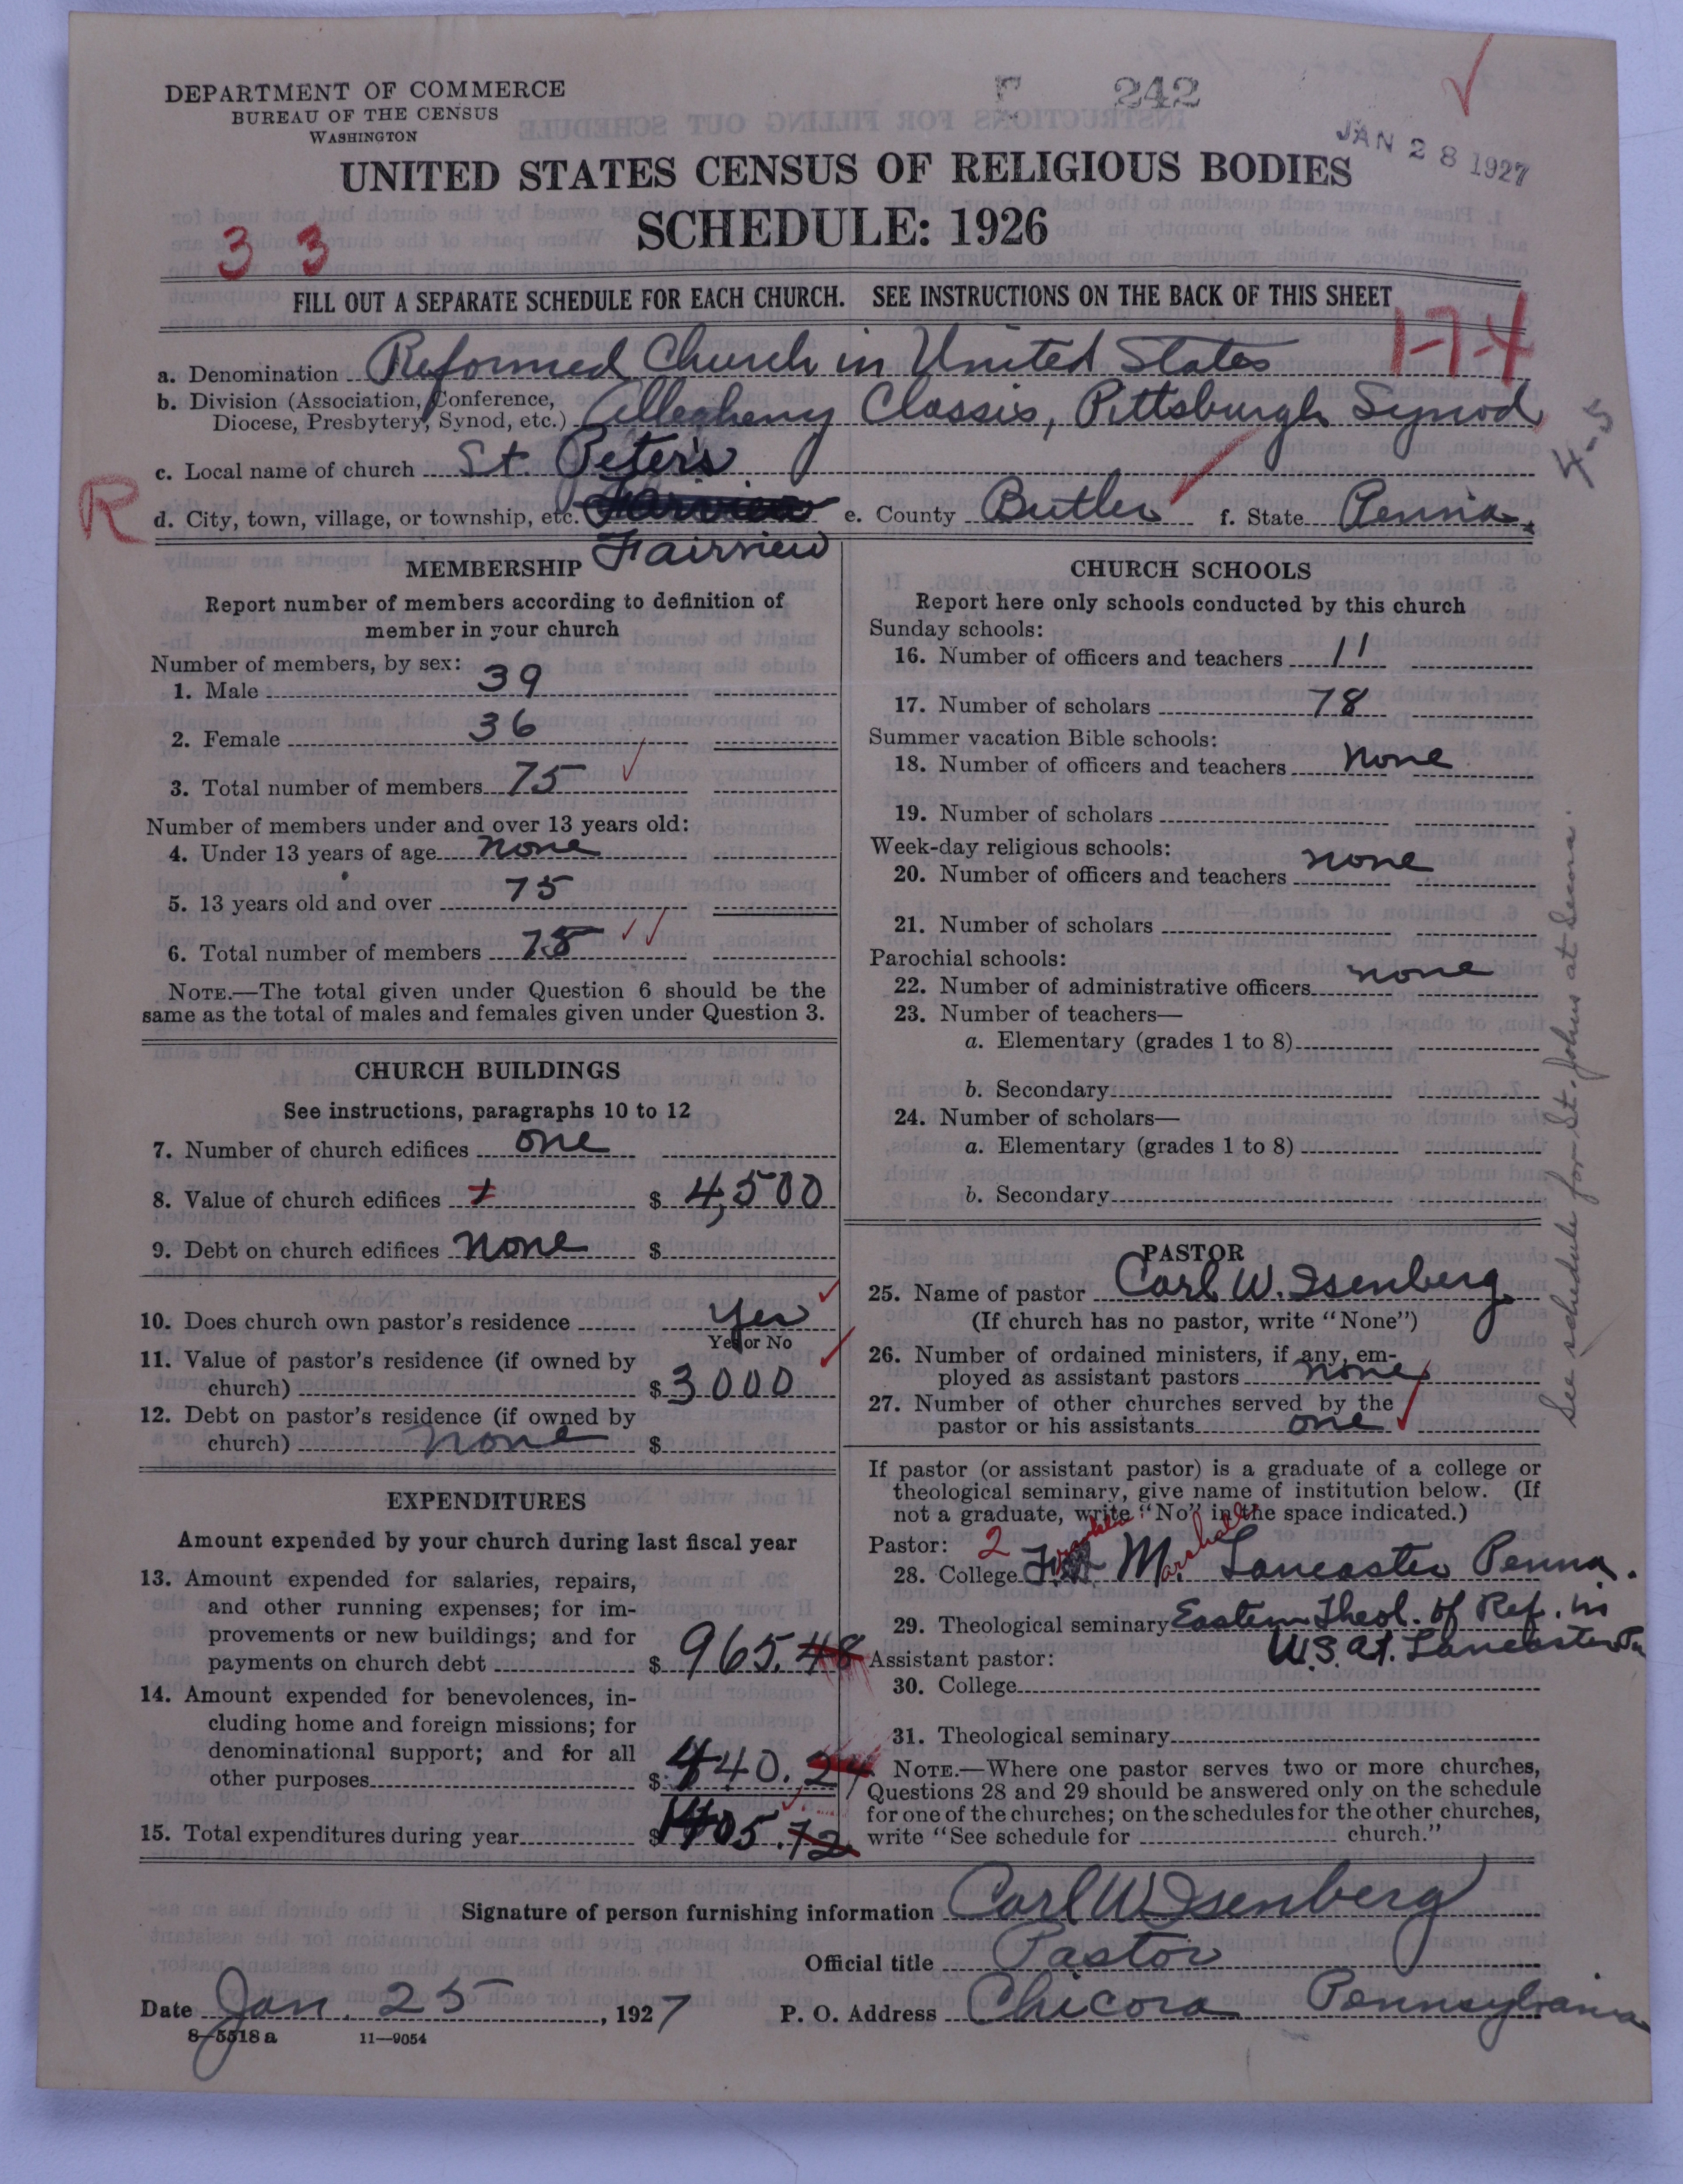 DEPARTMENT OF COMMERCE
BUREAU OF THE CENSUS
WASHINGTON
242
JAN 28 1927
UNITED STATES CENSUS OF RELIGIOUS BODIES
SCHEDULE: 1926
3 3
FILL OUT A SEPARATE SCHEDULE FOR EACH CHURCH. SEE INSTRUCTIONS ON THE BACK OF THIS SHEET
1-7-4
a. Denomination Reformed Church in United States
b. Division (Association, Conference,
Diocese, Presbytery, Synod, etc.) Allegheny Classis, Pittsburgh Synod
4-5
c. Local name of church St. Peter's
R
d. City, town, village, or township, etc. Fairview e. County Butler f. State Penna.
MEMBERSHIP
Report number of members according to definition of
member in your church
Number of members, by sex:
1. Male 39
2. Female 36
3. Total number of members 75
Number of members under and over 13 years old:
4. Under 13 years of age none
5. 13 years old and over 75
6. Total number of members 75
NOTE.—The total given under Question 6 should be the
same as the total of males and females given under Question 3.
CHURCH BUILDINGS
See instructions, paragraphs 10 to 12
7. Number of church edifices one
8. Value of church edifices $ 4,500
9. Debt on church edifices none $
10. Does church own pastor's residence Yes
Yes or No
11. Value of pastor's residence (if owned by
church) $ 3000
12. Debt on pastor's residence (if owned by
church) none $
EXPENDITURES
Amount expended by your church during last fiscal year
13. Amount expended for salaries, repairs,
and other running expenses; for im-
provements or new buildings; and for
payments on church debt $ 965.48
14. Amount expended for benevolences, in-
cluding home and foreign missions; for
denominational support; and for all
other purposes $ 440.24
15. Total expenditures during year $ 1405.72
CHURCH SCHOOLS
Report here only schools conducted by this church
Sunday schools:
16. Number of officers and teachers 11
17. Number of scholars 78
Summer vacation Bible schools:
18. Number of officers and teachers none
19. Number of scholars
Week-day religious schools:
20. Number of officers and teachers none
21. Number of scholars
Parochial schools:
22. Number of administrative officers none
23. Number of teachers—
a. Elementary (grades 1 to 8)
b. Secondary
24. Number of scholars—
a. Elementary (grades 1 to 8)
b. Secondary
PASTOR
25. Name of pastor Carl W. Isenberg
(If church has no pastor, write "None")
26. Number of ordained ministers, if any, em-
ployed as assistant pastors none
27. Number of other churches served by the
pastor or his assistants one
If pastor (or assistant pastor) is a graduate of a college or
theological seminary, give name of institution below. (If
not a graduate, write "No" in the space indicated.)
Pastor: 2
28. College Franklin & Marshall Lancaster Penna.
29. Theological seminary Eastern Theol. of Ref. in
U.S. at. Lancaster Pa
Assistant pastor:
30. College
31. Theological seminary
NOTE.—Where one pastor serves two or more churches,
Questions 28 and 29 should be answered only on the schedule
for one of the churches; on the schedules for the other churches,
write "See schedule for church."
See schedule for St. Johns at
Signature of person furnishing information Carl W Isenberg
Official title Pastor
Date Jan. 25, 1927 P. O. Address Chicora Pennsylvania
8-5518 a 11—9054